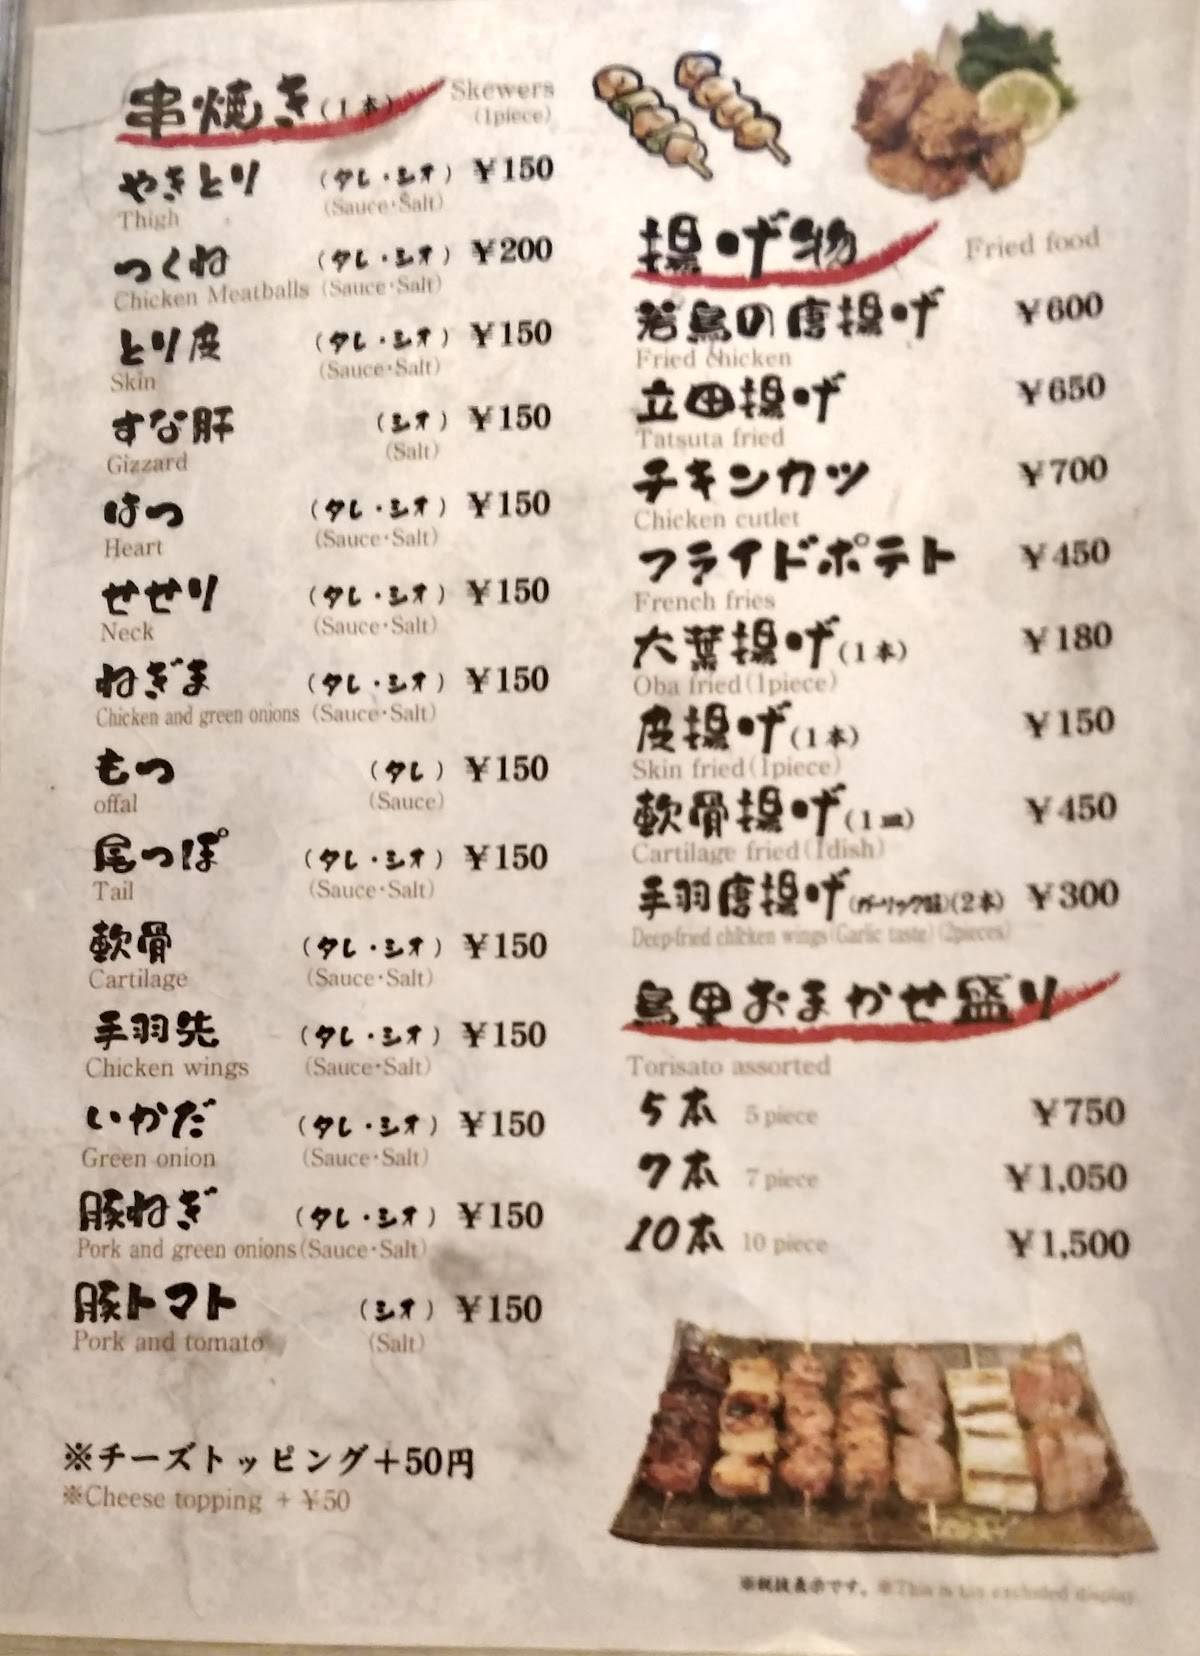 串焼き(1本) Skewers
(1piece)
やきとり (タレ・シオ) ¥150
Thigh (Sauce・Salt)
つくね (タレ・シオ) ¥200
Chicken Meatballs (Sauce・Salt)
とり皮 (タレ・シオ) ¥150
Skin (Sauce・Salt)
すな肝 (シオ) ¥150
Gizzard (Salt)
はつ (タレ・シオ) ¥150
Heart (Sauce・Salt)
せせり (タレ・シオ) ¥150
Neck (Sauce・Salt)
ねぎま (タレ・シオ) ¥150
Chicken and green onions (Sauce・Salt)
もつ (タレ) ¥150
offal (Sauce)
尾つぽ (タレ・シオ) ¥150
Tail (Sauce・Salt)
軟骨 (タレ・シオ) ¥150
Cartilage (Sauce・Salt)
手羽先 (タレ・シオ) ¥150
Chicken wings (Sauce・Salt)
いかだ (タレ・シオ) ¥150
Green onion (Sauce・Salt)
豚ねぎ (タレ・シオ) ¥150
Pork and green onions (Sauce・Salt)
豚トマト (シオ) ¥150
Pork and tomato (Salt)
※チーズトッピング+50円
※Cheese topping + ¥50
揚げ物 Fried food
若鳥の唐揚げ ¥600
Fried chicken
立田揚げ ¥650
Tatsuta fried
チキンカツ ¥700
Chicken cutlet
フライドポテト ¥450
French fries
大葉揚げ(1本) ¥180
Oba fried(1piece)
皮揚げ(1本) ¥150
Skin fried(1piece)
軟骨揚げ(1皿) ¥450
Cartilage fried(1dish)
手羽唐揚げ(ガーリック味)(2本) ¥300
Deep-fried chicken wings(Garlic taste)(2pieces)
鳥里おまかせ盛り
Torisato assorted
5本 5 piece ¥750
7本 7 piece ¥1,050
10本 10 piece ¥1,500
※税抜表示です。※This is tax excluded display.